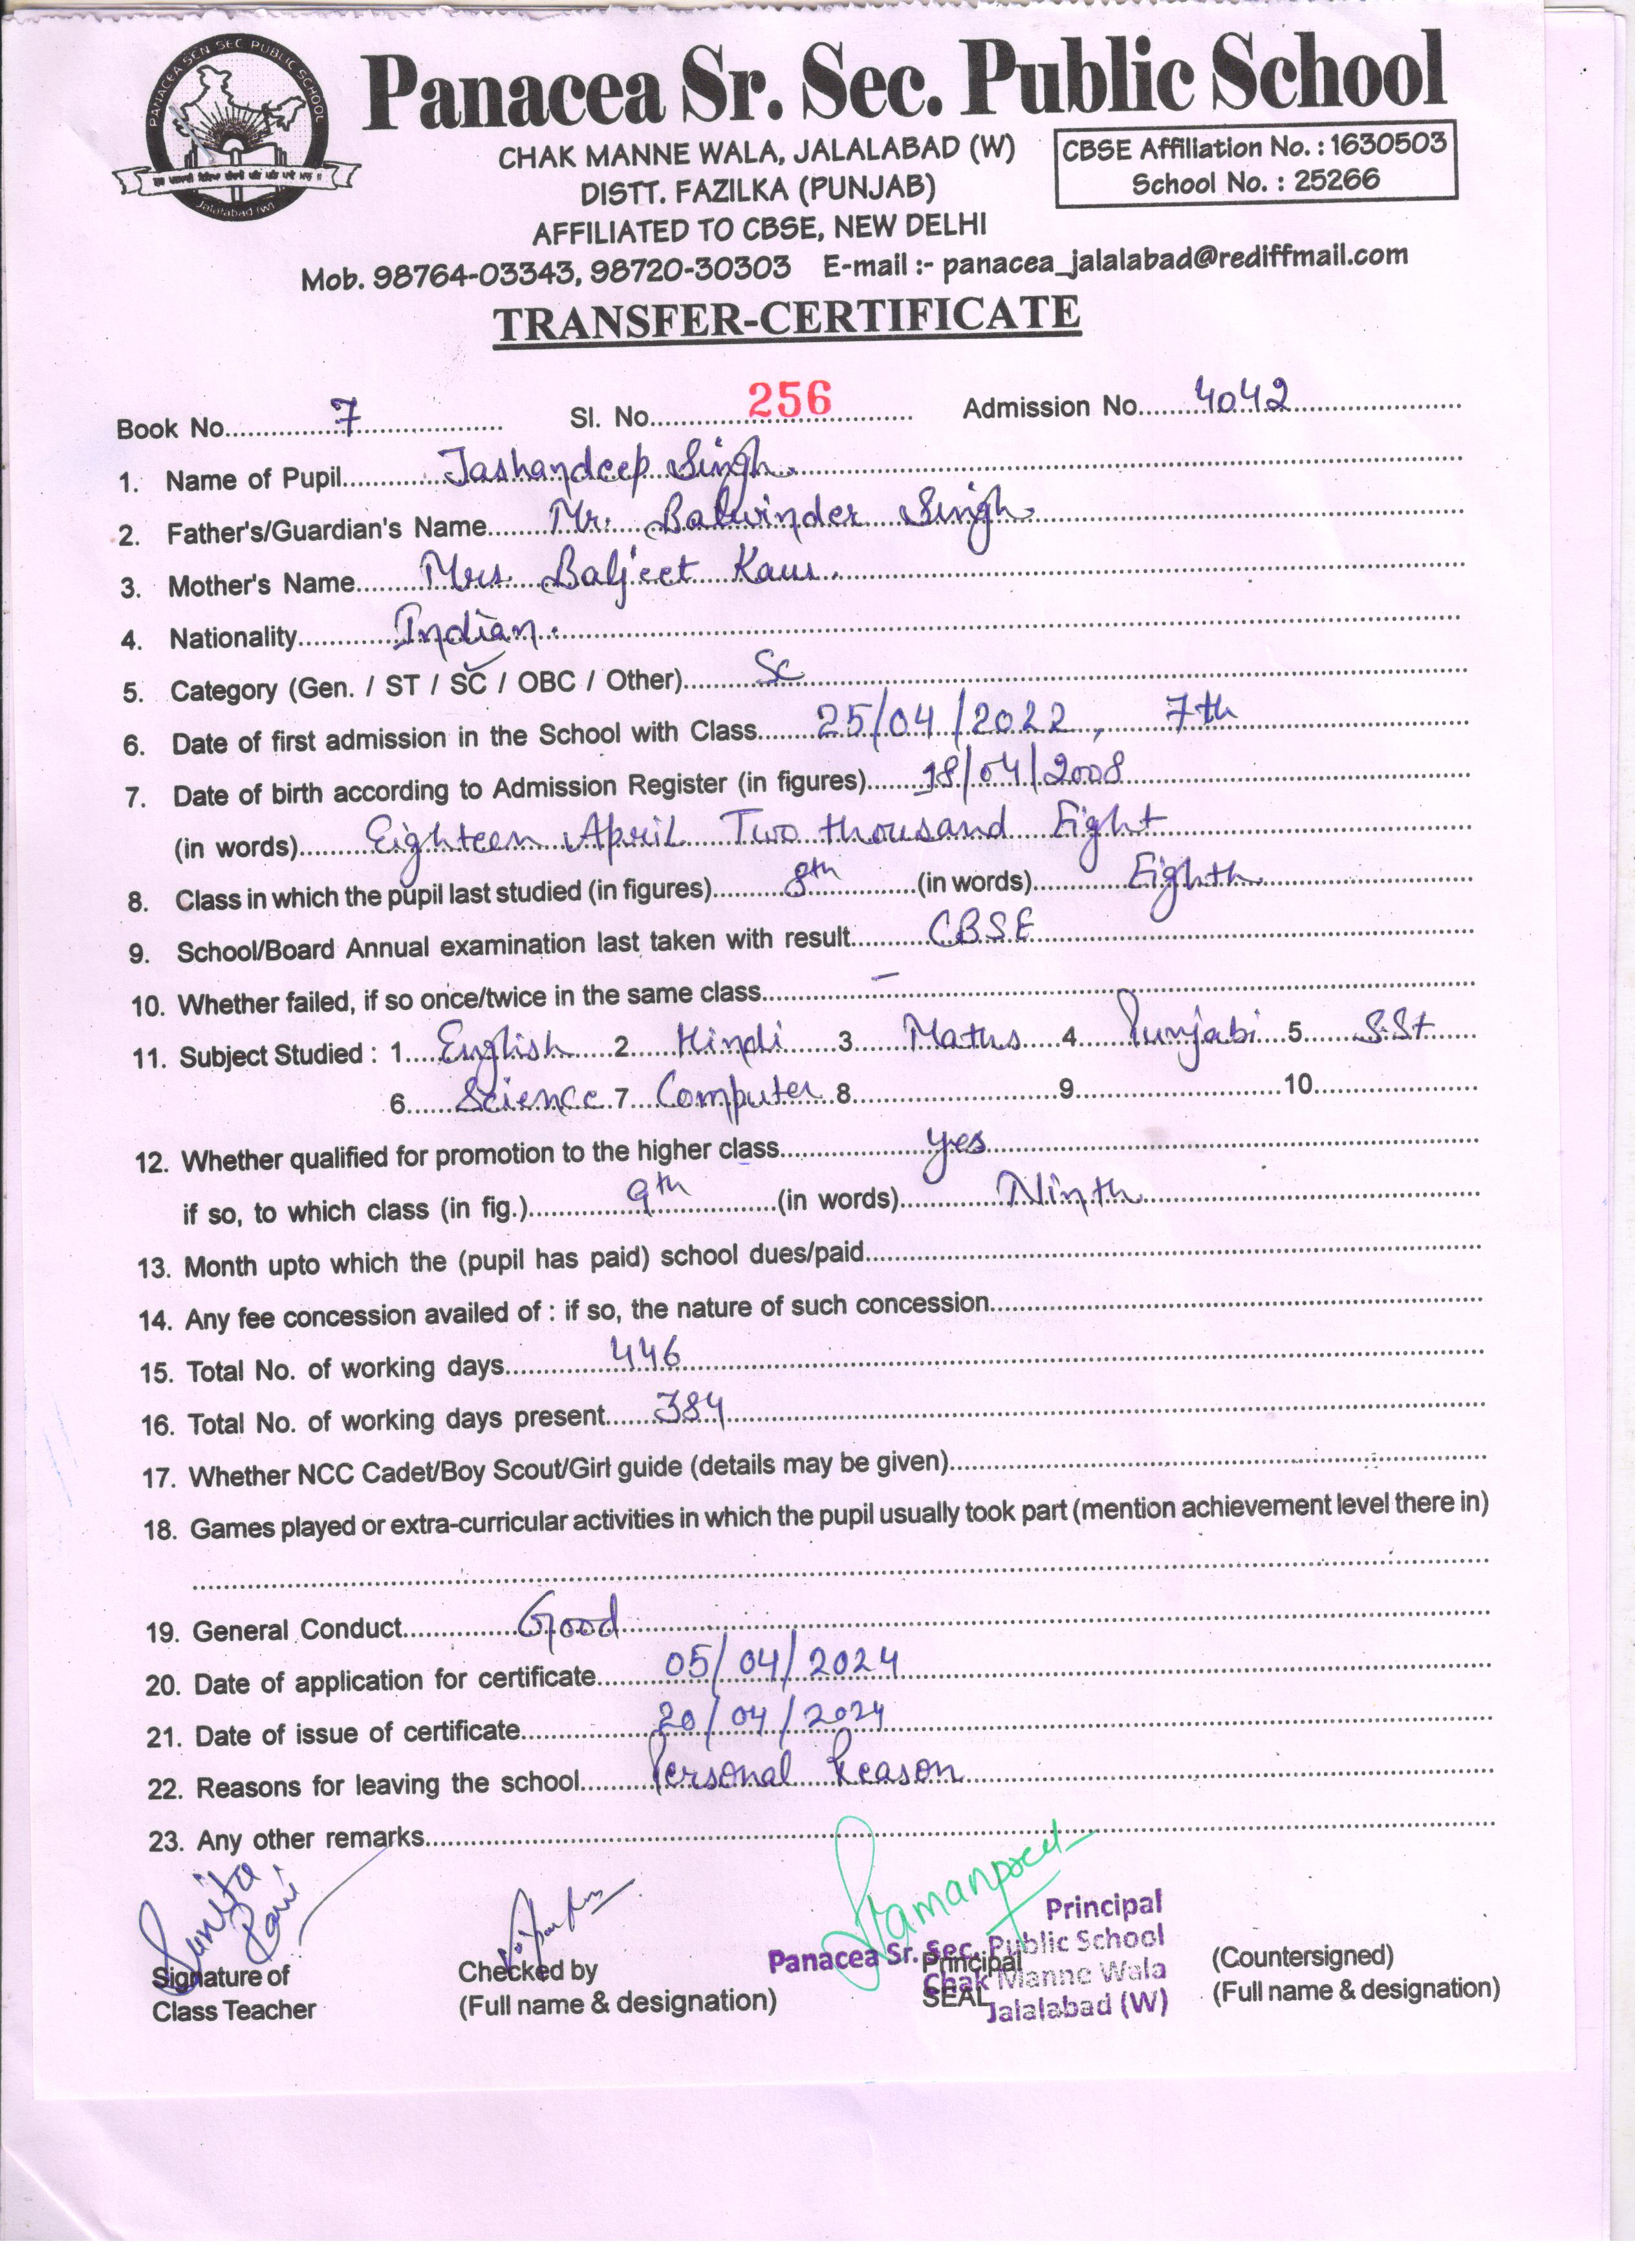 PANACEA SEN SEC PUBLIC SCHOOL
Jalalabad (W)
Panacea Sr. Sec. Public School
CHAK MANNE WALA, JALALABAD (W)
DISTT. FAZILKA (PUNJAB)
AFFILIATED TO CBSE, NEW DELHI
CBSE Affiliation No. : 1630503
School No. : 25266
Mob. 98764-03343, 98720-30303 E-mail :- panacea_jalalabad@rediffmail.com
TRANSFER-CERTIFICATE
Book No. 7 Sl. No. 256 Admission No. 4042
1. Name of Pupil Jashandeep Singh
2. Father's/Guardian's Name Mr. Balwinder Singh
3. Mother's Name Mrs. Baljeet Kaur.
4. Nationality Indian.
5. Category (Gen. / ST / SC / OBC / Other) SC
6. Date of first admission in the School with Class 25/04/2022, 7th
7. Date of birth according to Admission Register (in figures) 18/04/2008
(in words) Eighteen April Two thousand Eight
8. Class in which the pupil last studied (in figures) 8th (in words) Eighth
9. School/Board Annual examination last taken with result CBSE
10. Whether failed, if so once/twice in the same class –
11. Subject Studied : 1. English 2. Hindi 3. Maths 4. Punjabi 5. S.St
6. Science 7. Computer 8. 9. 10.
12. Whether qualified for promotion to the higher class yes
if so, to which class (in fig.) 9th (in words) Ninth
13. Month upto which the (pupil has paid) school dues/paid
14. Any fee concession availed of : if so, the nature of such concession
15. Total No. of working days 446
16. Total No. of working days present 384
17. Whether NCC Cadet/Boy Scout/Girl guide (details may be given)
18. Games played or extra-curricular activities in which the pupil usually took part (mention achievement level there in)
19. General Conduct Good
20. Date of application for certificate 05/04/2024
21. Date of issue of certificate 20/04/2024
22. Reasons for leaving the school Personal Reason
23. Any other remarks
Sunita Rani
Signature of
Class Teacher
Checked by
(Full name & designation)
Principal
Panacea Sr. Sec. Public School
Chak Manne Wala
Jalalabad (W)
Principal
SEAL
(Countersigned)
(Full name & designation)